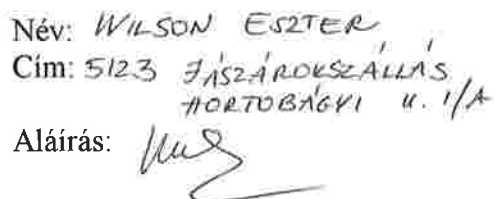 Név: WILSON ESZTER
Cím: 5123 JÁSZÁROKSZÁLLÁS
HORTOBÁGYI u. 1/A
Aláírás: